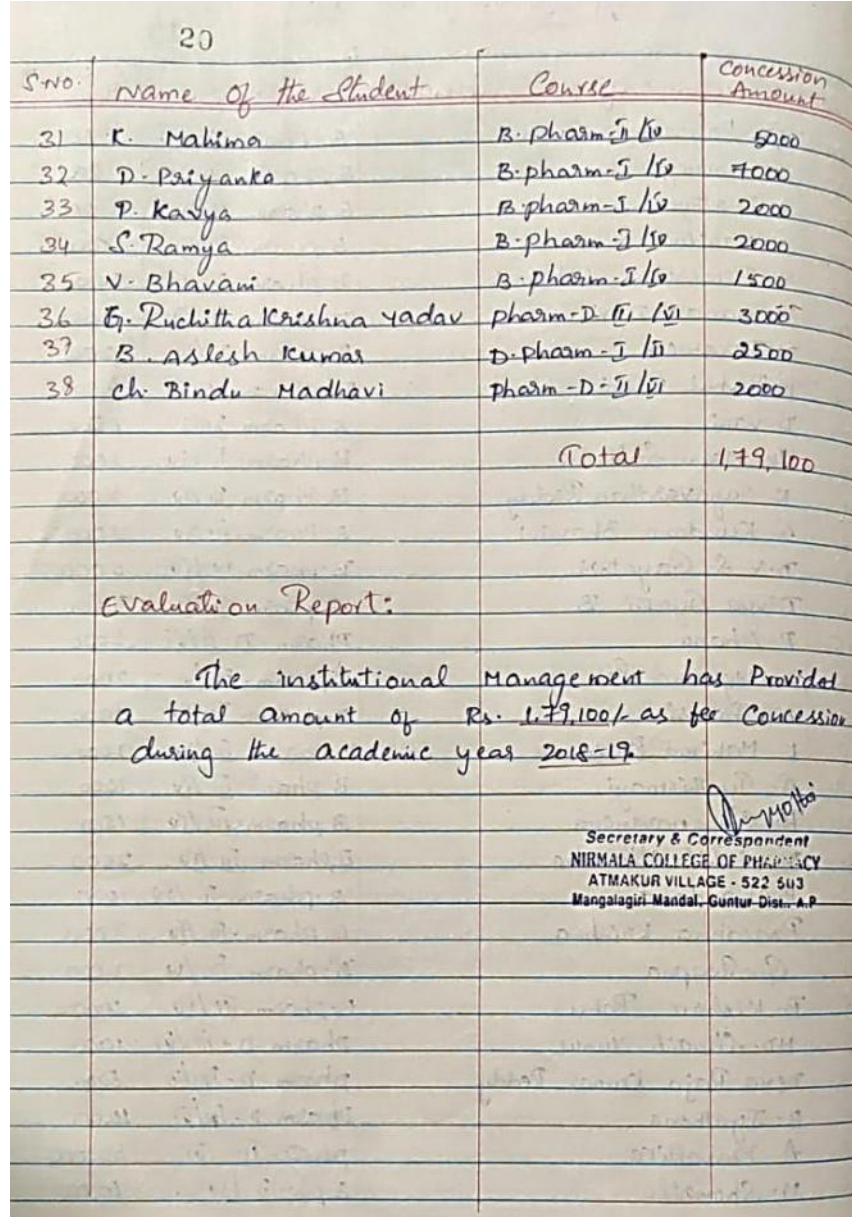 20
S.No. Name of the Student Course Concession Amount
31 K. Mahima B. pharm-II/IV 5000
32 D. Priyanka B. pharm-I/IV 7000
33 P. Kavya B. pharm-I/IV 2000
34 S. Ramya B. pharm-I/IV 2000
35 V. Bhavani B. pharm-I/IV 1500
36 G. Ruchitha Krishna Yadav pharm-D III/VI 3000
37 B. Aslesh Kumar D. pharm-I/II 2500
38 Ch. Bindu Madhavi pharm-D-II/VI 2000
Total 1,79,100
Evaluation Report:
The institutional Management has Provided
a total amount of Rs. 1,79,100/- as fee Concession
during the academic year 2018-19.
Secretary & Correspondent
NIRMALA COLLEGE OF PHARMACY
ATMAKUR VILLAGE - 522 503
Mangalagiri Mandal, Guntur Dist., A.P